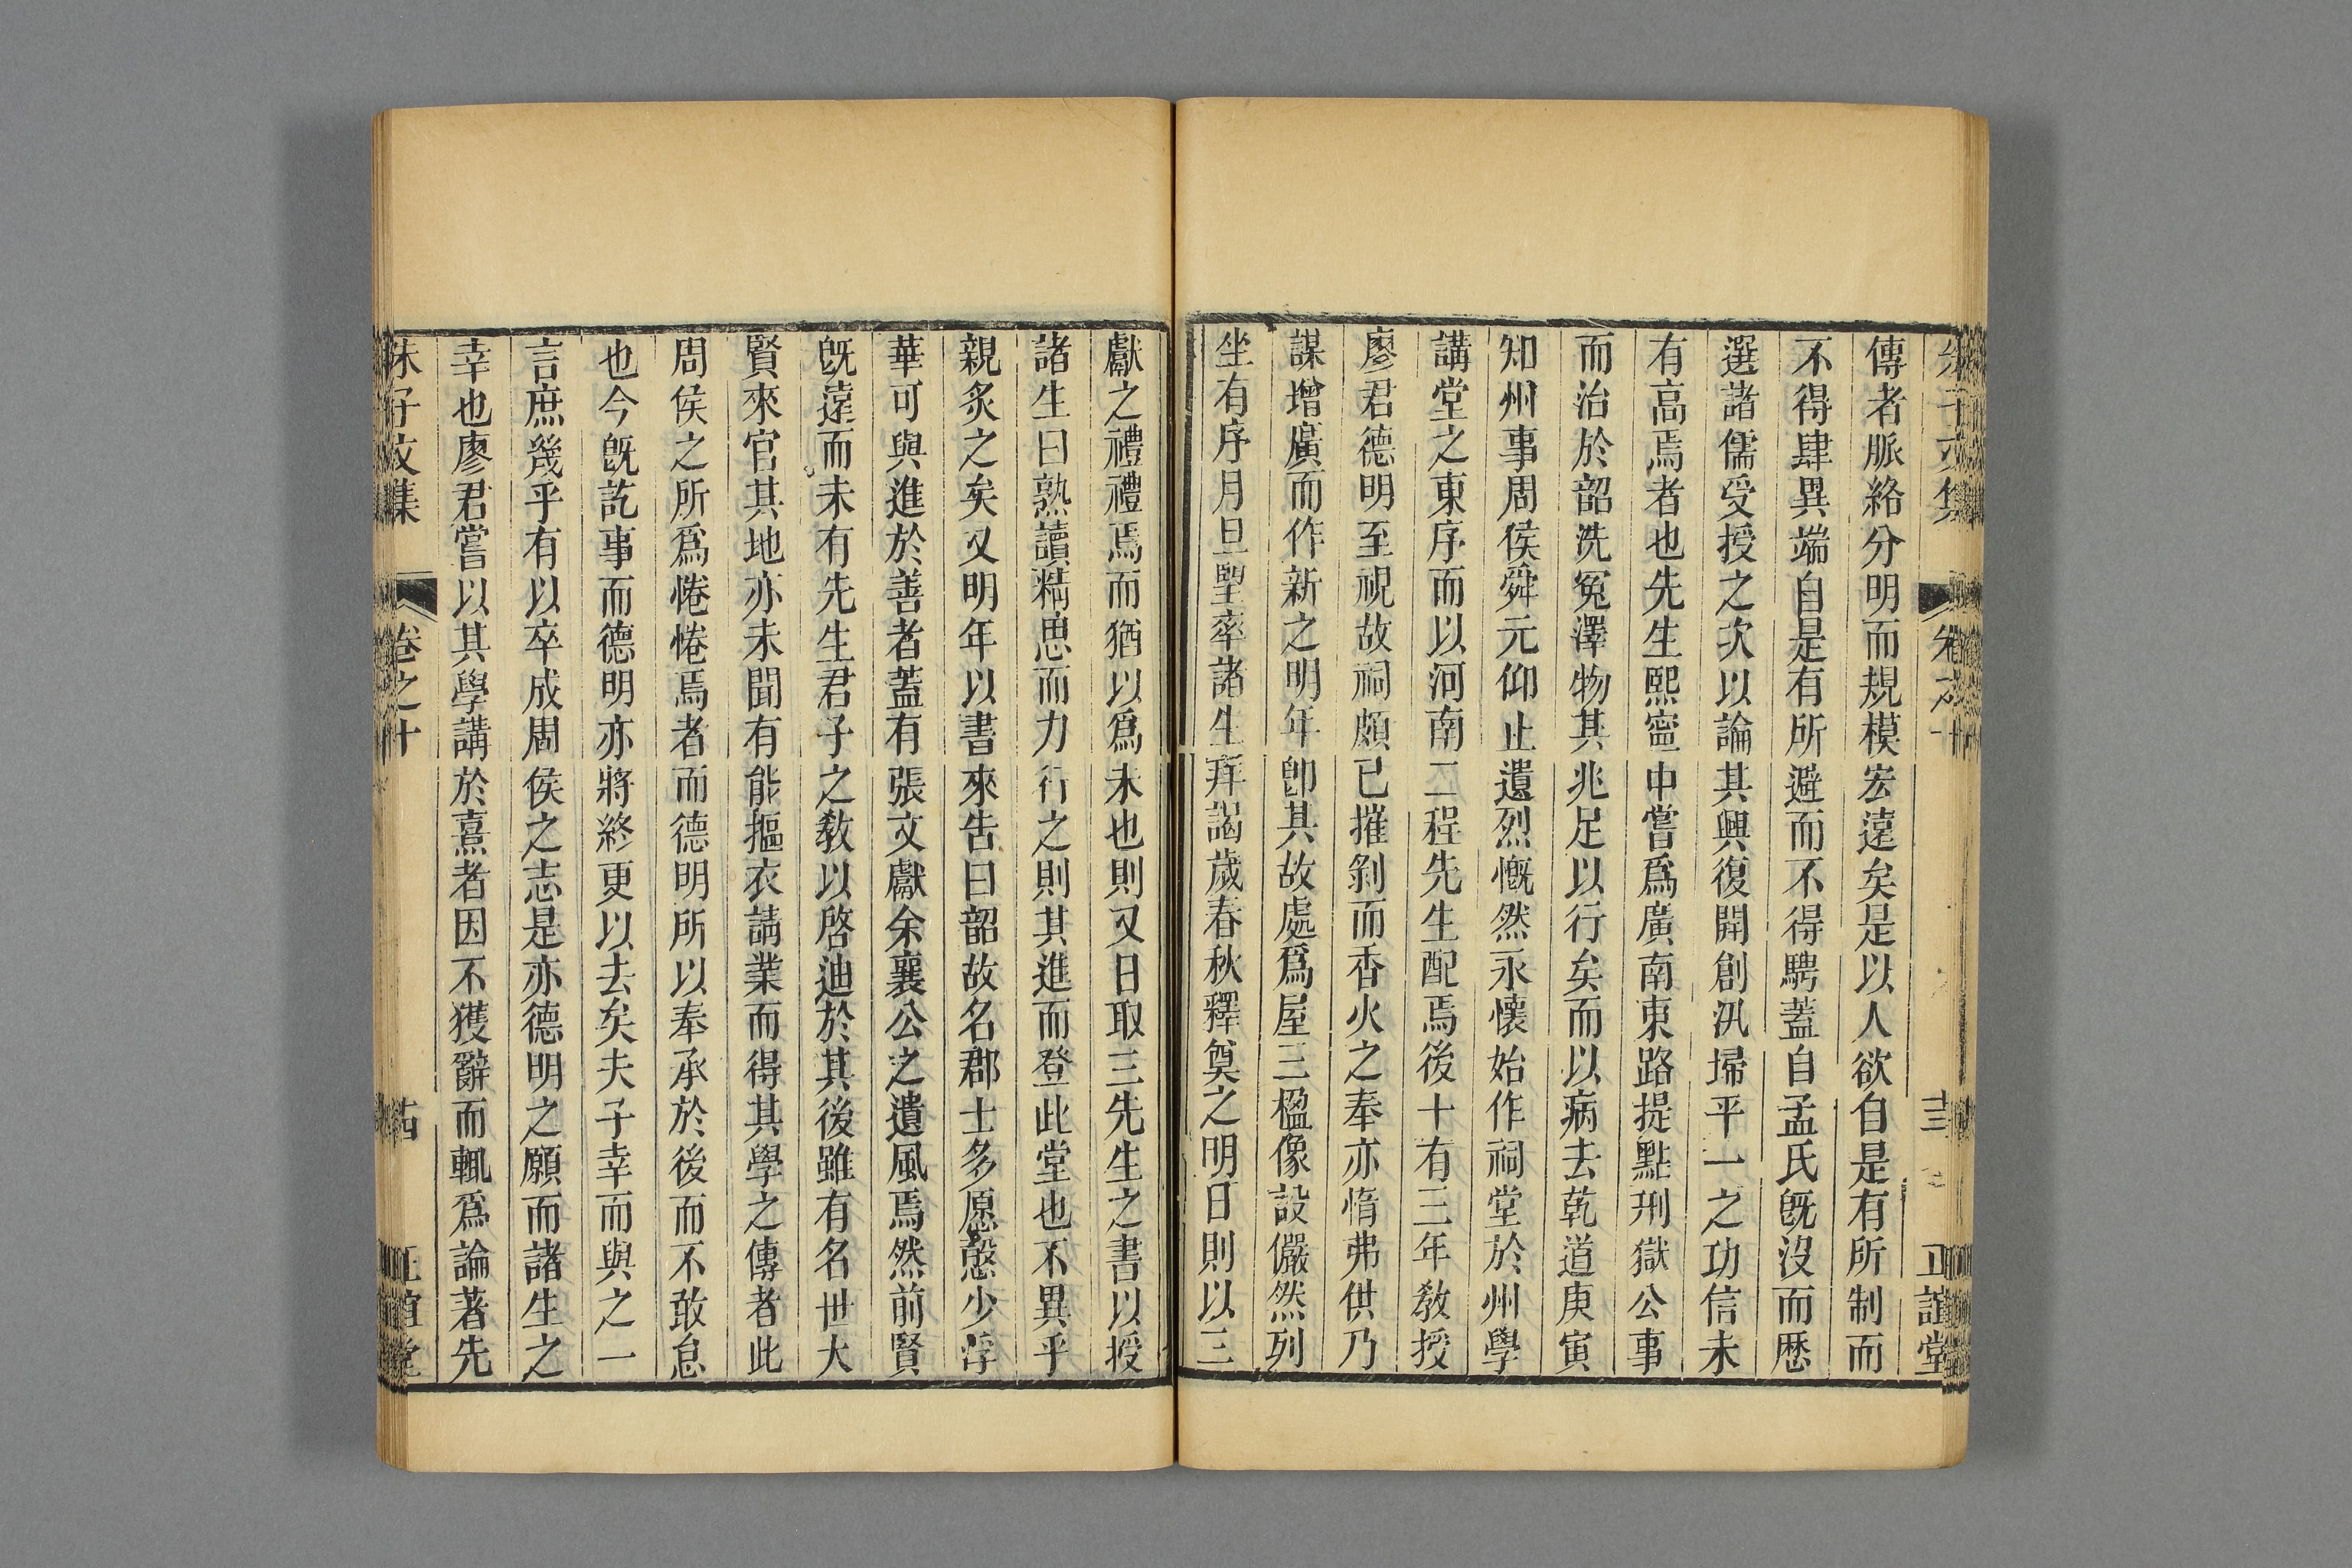 朱子文集 卷之十 十三 正誼堂
傳者脈絡分明而規模宏遠矣是以人欲自是有所制而
不得肆異端自是有所避而不得騁蓋自孟氏旣沒而歷
選諸儒受授之次以論其興復開創汎埽平一之功信未
有高焉者也先生熙寧中嘗爲廣南東路提點刑獄公事
而治於韶洗冤澤物其兆足以行矣而以病去乾道庚寅
知州事周侯舜元仰止遺烈慨然永懷始作祠堂於州學
講堂之東序而以河南二程先生配焉後十有三年敎授
廖君德明至視故祠頗已摧剝而香火之奉亦惰弗供乃
謀增廣而作新之明年卽其故處爲屋三楹像設儼然列
坐有序月旦望率諸生拜謁歲春秋釋奠之明日則以三
獻之禮禮焉而猶以爲未也則又日取三先生之書以授
諸生曰熟讀精思而力行之則其進而登此堂也不異乎
親炙之矣又明年以書來告曰韶故名郡士多愿慤少浮
華可與進於善者蓋有張文獻余襄公之遺風焉然前賢
旣遠而未有先生君子之敎以啓迪於其後雖有名世大
賢來官其地亦未聞有能摳衣請業而得其學之傳者此
周侯之所爲惓惓焉者而德明所以奉承於後而不敢怠
也今旣訖事而德明亦將終更以去矣夫子幸而與之一
言庶幾乎有以卒成周侯之志是亦德明之願而諸生之
幸也廖君嘗以其學講於熹者因不獲辭而輒爲論著先
朱子文集 卷之十 十四 正誼堂